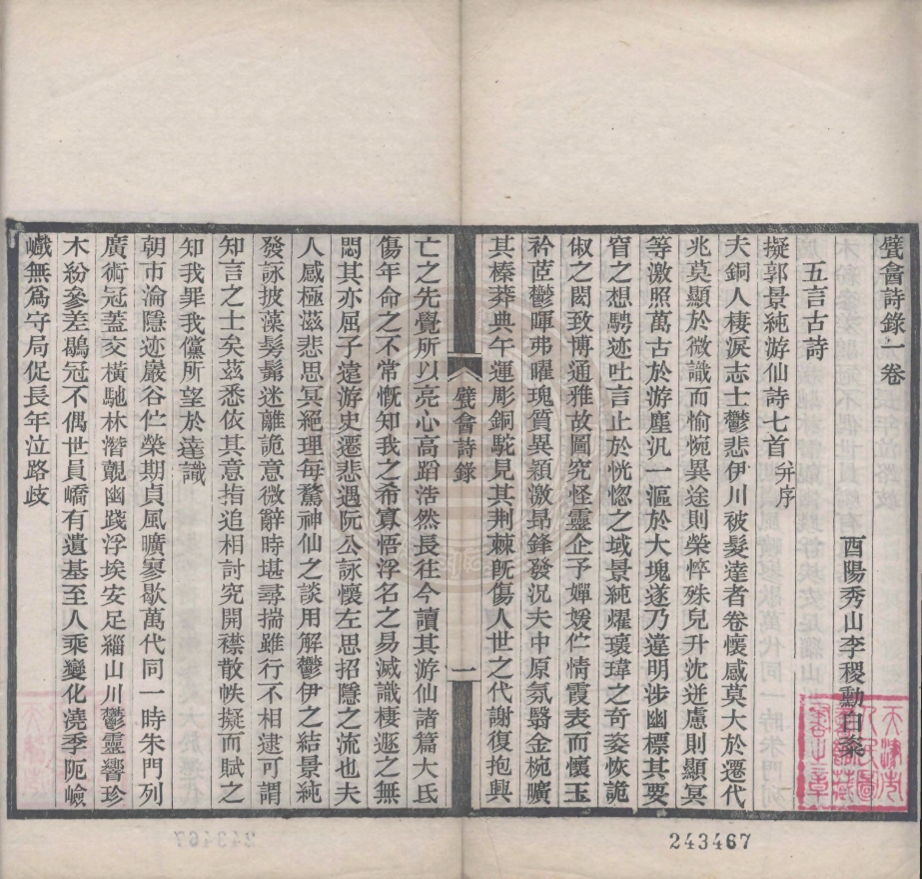 甓㑹詩錄一卷
酉陽秀山李稷勳白桼
五言古詩
擬郭景純游仙詩七首 并序
夫銅人棲淚志士鬱悲伊川被髮達者卷懷感莫大於遷代
兆莫顯於微識而愉惋異途則榮悴殊皃升沈迸慮則顯冥
等激照萬古於游塵汎一漚於大塊遂乃違明涉幽標其要
窅之想騁迹吐言止於恍惚之域景純燿瓌瑋之奇姿恢詭
俶之閎致博通雅故圖究怪靈企予嬋媛伫情霞表而懷玉
衿茝鬱暉弗曜瑰質異穎激昂鋒發況夫中原氛翳金椀曠
其榛莽典午運彫銅駝見其荆棘旣傷人世之代謝復抱興
甓㑹詩錄
一
亡之先覺所以亮心高蹈浩然長往今讀其游仙諸篇大氐
傷年命之不常慨知我之希寡悟浮名之易滅識棲遯之無
悶其亦屈子遠游史遷悲遇阮公詠懷左思招隱之流也夫
人感極滋悲思冥絕理每騖神仙之談用解鬱伊之結景純
發詠披藻髣髴迷離詭意微辭時堪尋揣雖行不相逮可謂
知言之士矣茲悉依其意指追相討究開襟散帙擬而賦之
知我罪我儻所望於達識
朝市淪隱迹巖谷伫榮期貞風曠寥歇萬代同一時朱門列
廣術冠蓋交橫馳林潛覿幽踐浮埃安足緇山川鬱靈響珍
木紛參差鶡冠不偶世員嶠有遺基至人乘變化澆季阨嶮
巇無爲守局促長年泣路歧
243467